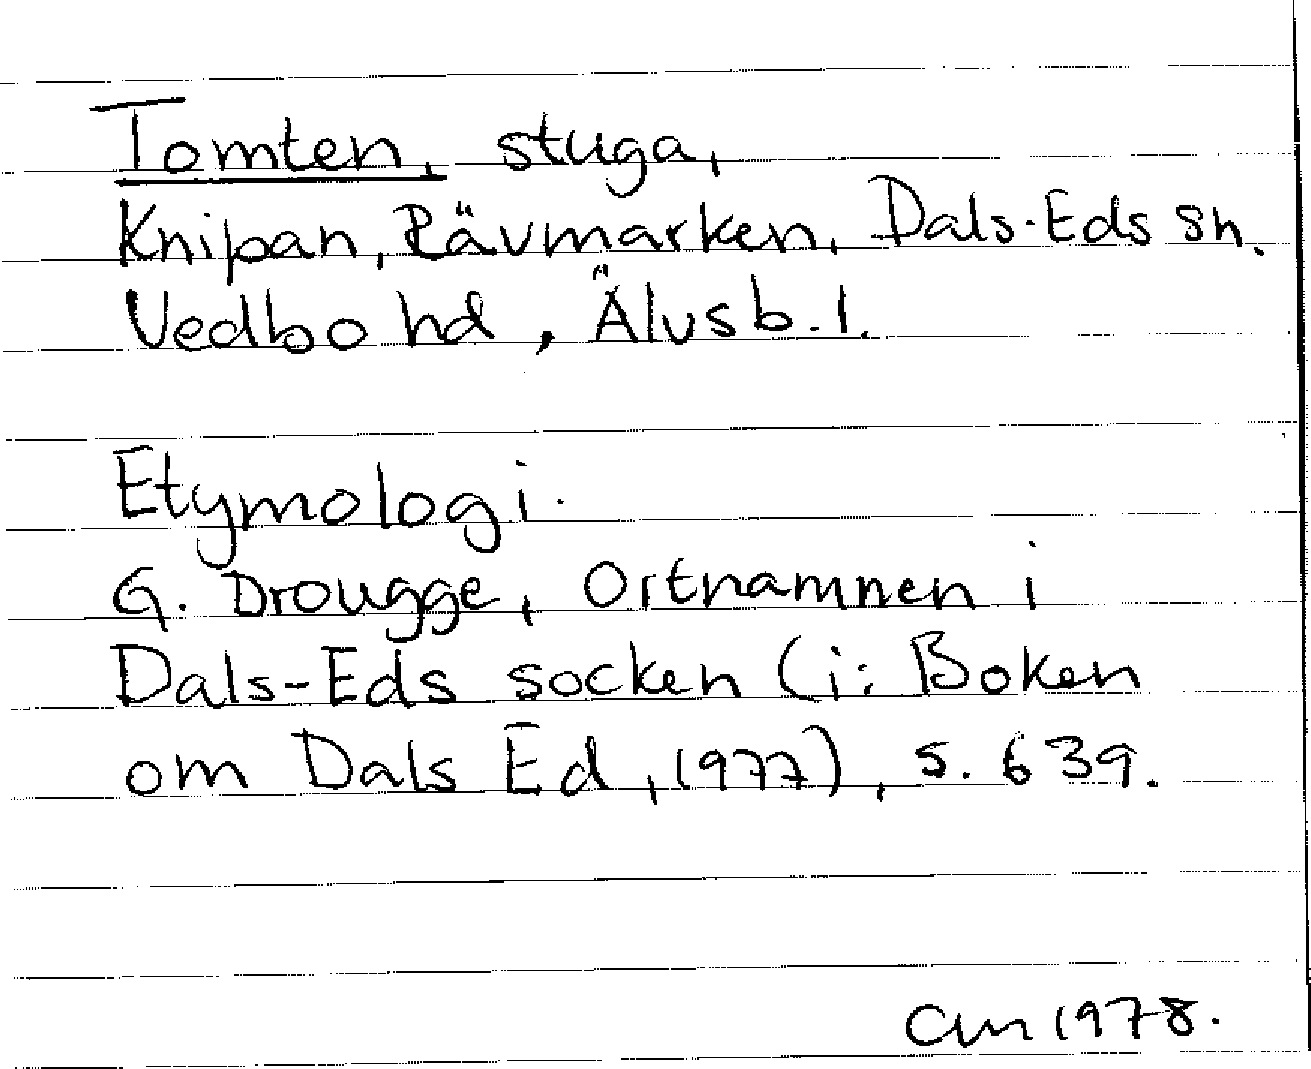 Tomten, stuga,
Knipan, Rävmarken, Dals-Eds sn.
Vedbo hd, Älvsb. l.
Etymologi.
G. Drougge, Ortnamnen i
Dals-Eds socken (i: Boken
om Dals Ed, 1977), s. 639.
1978.